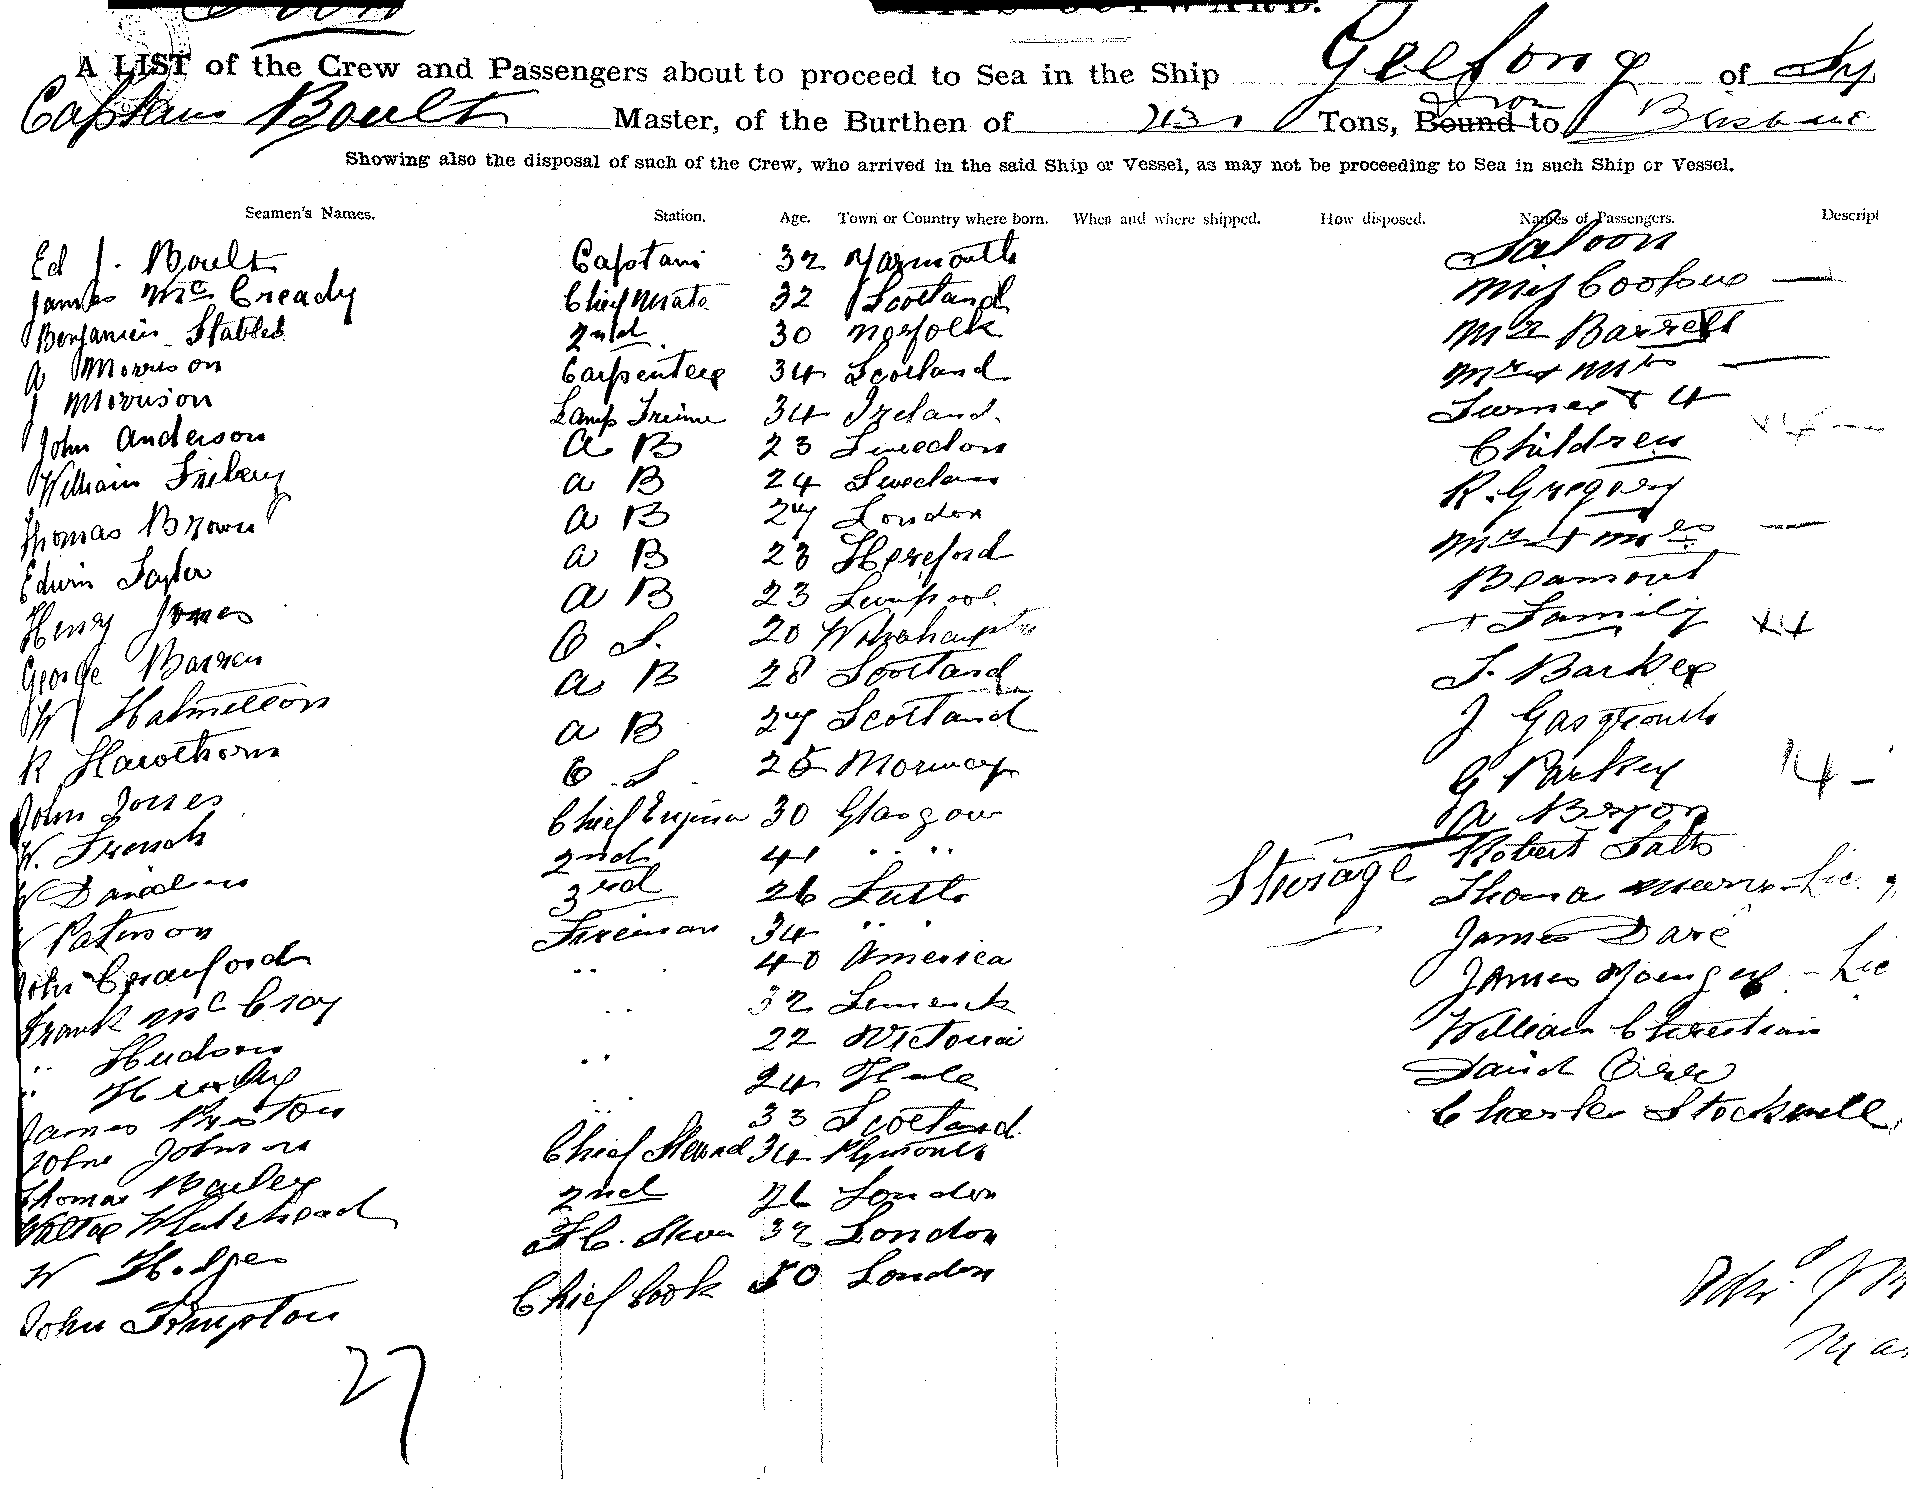 A LIST of the Crew and Passengers about to proceed to Sea in the Ship Geelong of Sy
Captain Boult Master, of the Burthen of Tons, Bound to from Brisbane
Showing also the disposal of such of the Crew, who arrived in the said Ship or Vessel, as may not be proceeding to Sea in such Ship or Vessel.
Seamen's Names. Station. Age. Town or Country where born. When and where shipped. How disposed. Names of Passengers. Descript
Saloon
Ed J. Boult Captain 32 Yarmouth
James McCready Chief Mate 32 Scotland Miss
Benjamin Stables 2nd 30 Norfolk Mr Barrett
A Morrison Carpenter 34 Scotland Mr & Mrs
J Morrison Lamp Trimer 34 Ireland. Turner & 4
John Anderson A B 23 Sweedon Children
William Friberg A B 24 Swedan R. Gregory
Thomas Brown A B 27 London Mr & Mrs
Edwin Taylor A B 23 Hereford Beamont
Henry Jones A B 23 Liverpool + Family
George Barren O S. 20
W Hamilton A B 28 Scotland J. Barker
R Hawthorn A B 27 Scotland J
John Jones O. S 25 Norway G Parkey 14
W. French Chief Engineer 30 Glasgow A Bryon
W 2nd 41 " " Robert Salts
W Paterson 3rd 26 Leith Storage Thomas
John Crawford Fireman 34 " " James Dare
Frank McCray " 40 America James Younger - Lic
" Hudson " 32 Limerick William Christian
" " 22 Victoria David Orr
James Preston " 24 Hull Charles Stockwell
33 Scotland
John Johnson Chief Steward 34 Plymouth
Thomas Bailey 2nd 26 London
Walter Whitehead F.C. Stew 32 London
W Hodges Chief Cook 50 London
John Simpton
27